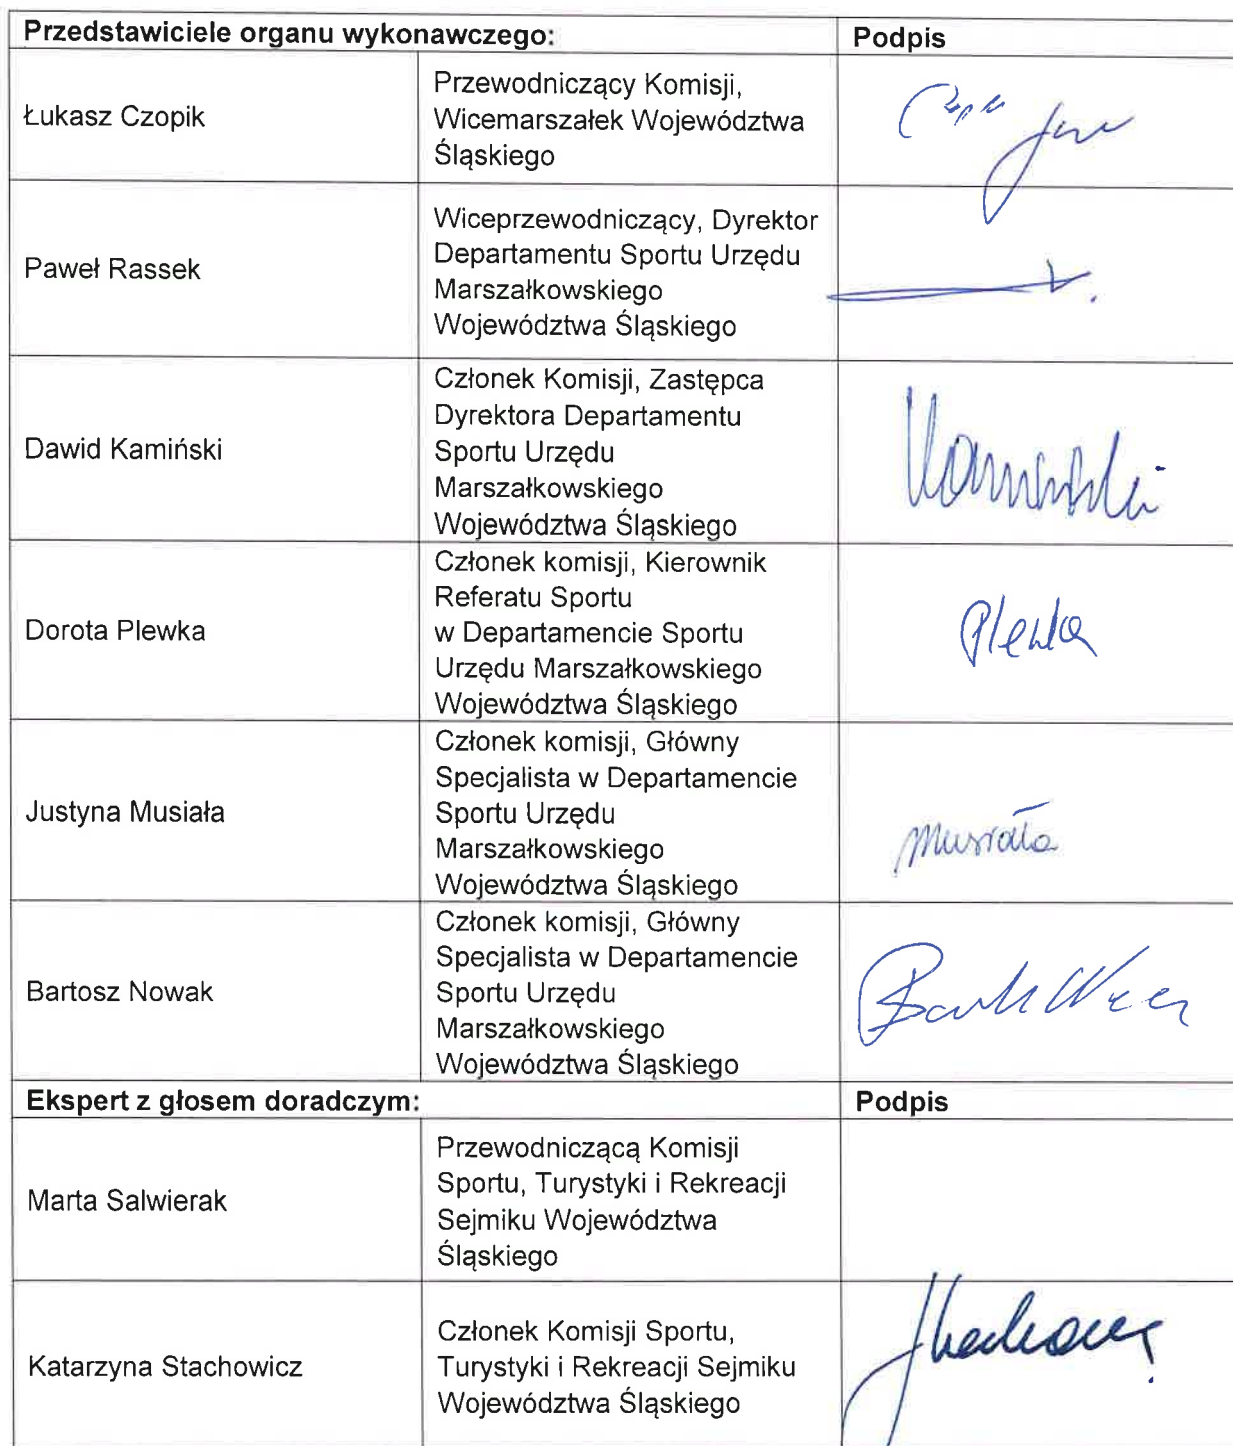 Przedstawiciele organu wykonawczego: Podpis
Łukasz Czopik
Przewodniczący Komisji,
Wicemarszałek Województwa
Śląskiego
Paweł Rassek
Wiceprzewodniczący, Dyrektor
Departamentu Sportu Urzędu
Marszałkowskiego
Województwa Śląskiego
Dawid Kamiński
Członek Komisji, Zastępca
Dyrektora Departamentu
Sportu Urzędu
Marszałkowskiego
Województwa Śląskiego
Kamiński
Dorota Plewka
Członek komisji, Kierownik
Referatu Sportu
w Departamencie Sportu
Urzędu Marszałkowskiego
Województwa Śląskiego
Plewka
Justyna Musiała
Członek komisji, Główny
Specjalista w Departamencie
Sportu Urzędu
Marszałkowskiego
Województwa Śląskiego
Musiała
Bartosz Nowak
Członek komisji, Główny
Specjalista w Departamencie
Sportu Urzędu
Marszałkowskiego
Województwa Śląskiego
Ekspert z głosem doradczym: Podpis
Marta Salwierak
Przewodniczącą Komisji
Sportu, Turystyki i Rekreacji
Sejmiku Województwa
Śląskiego
Katarzyna Stachowicz
Członek Komisji Sportu,
Turystyki i Rekreacji Sejmiku
Województwa Śląskiego